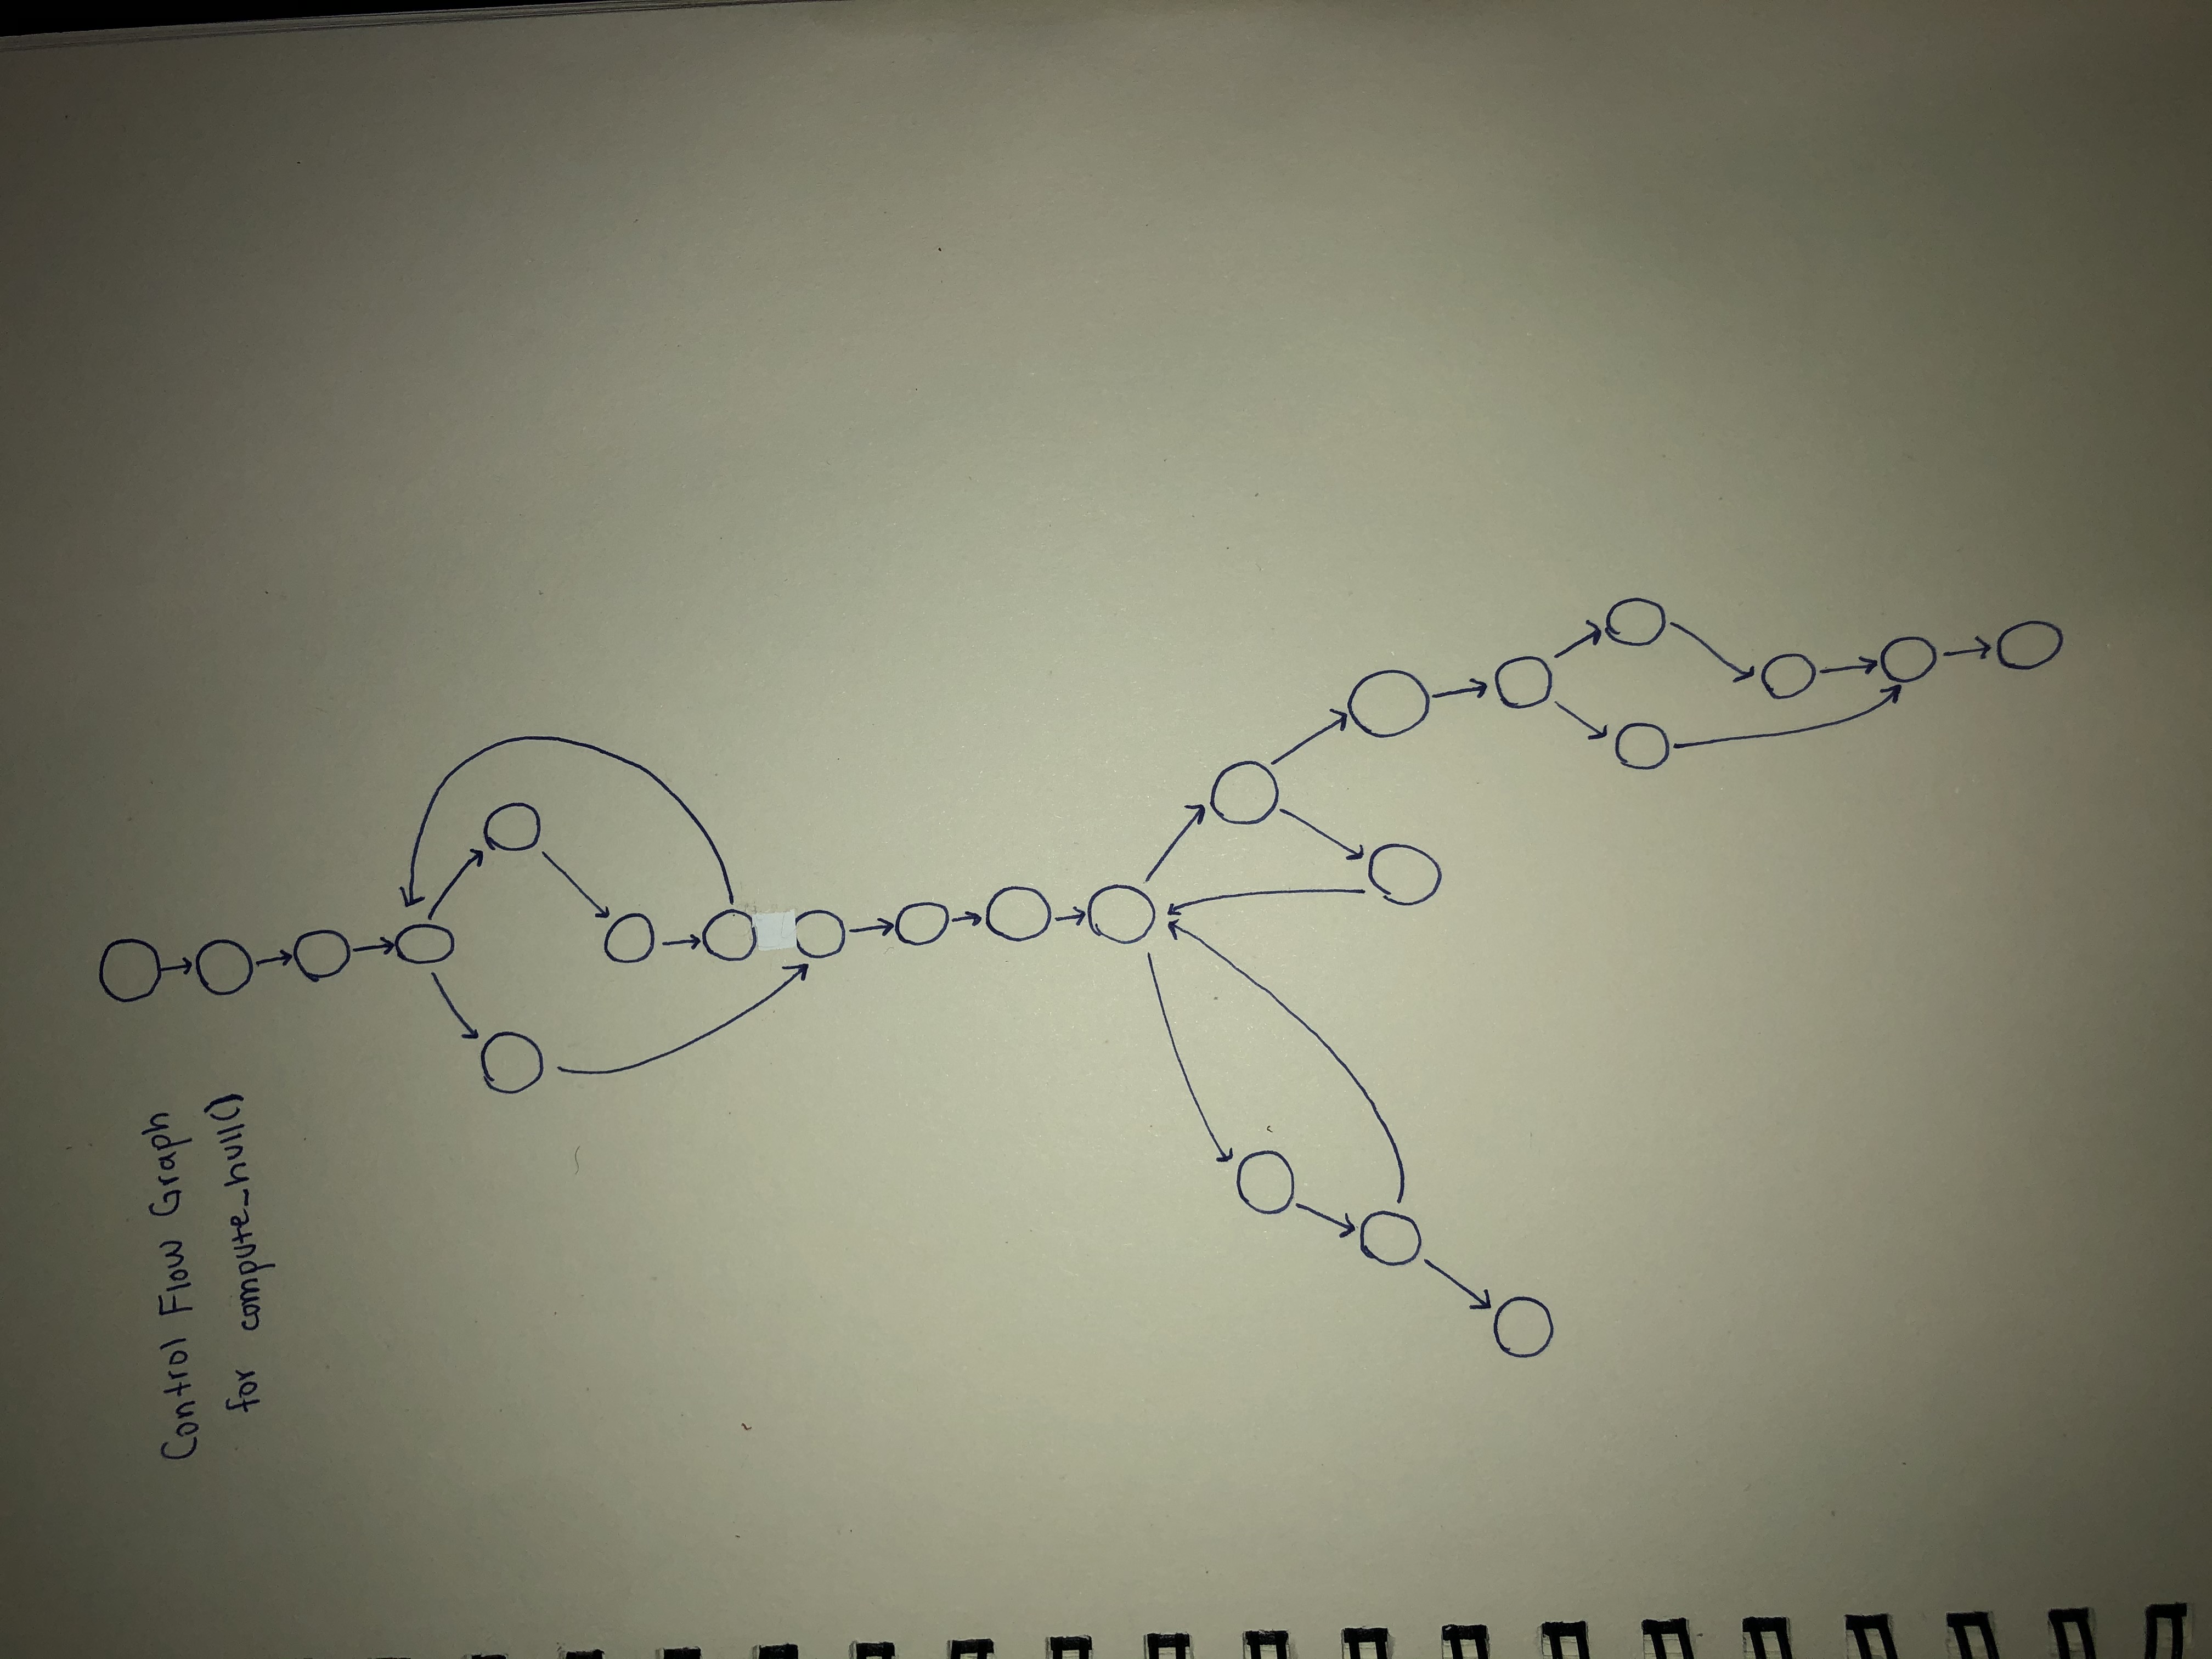 Control Flow Graph
for compute_hull()